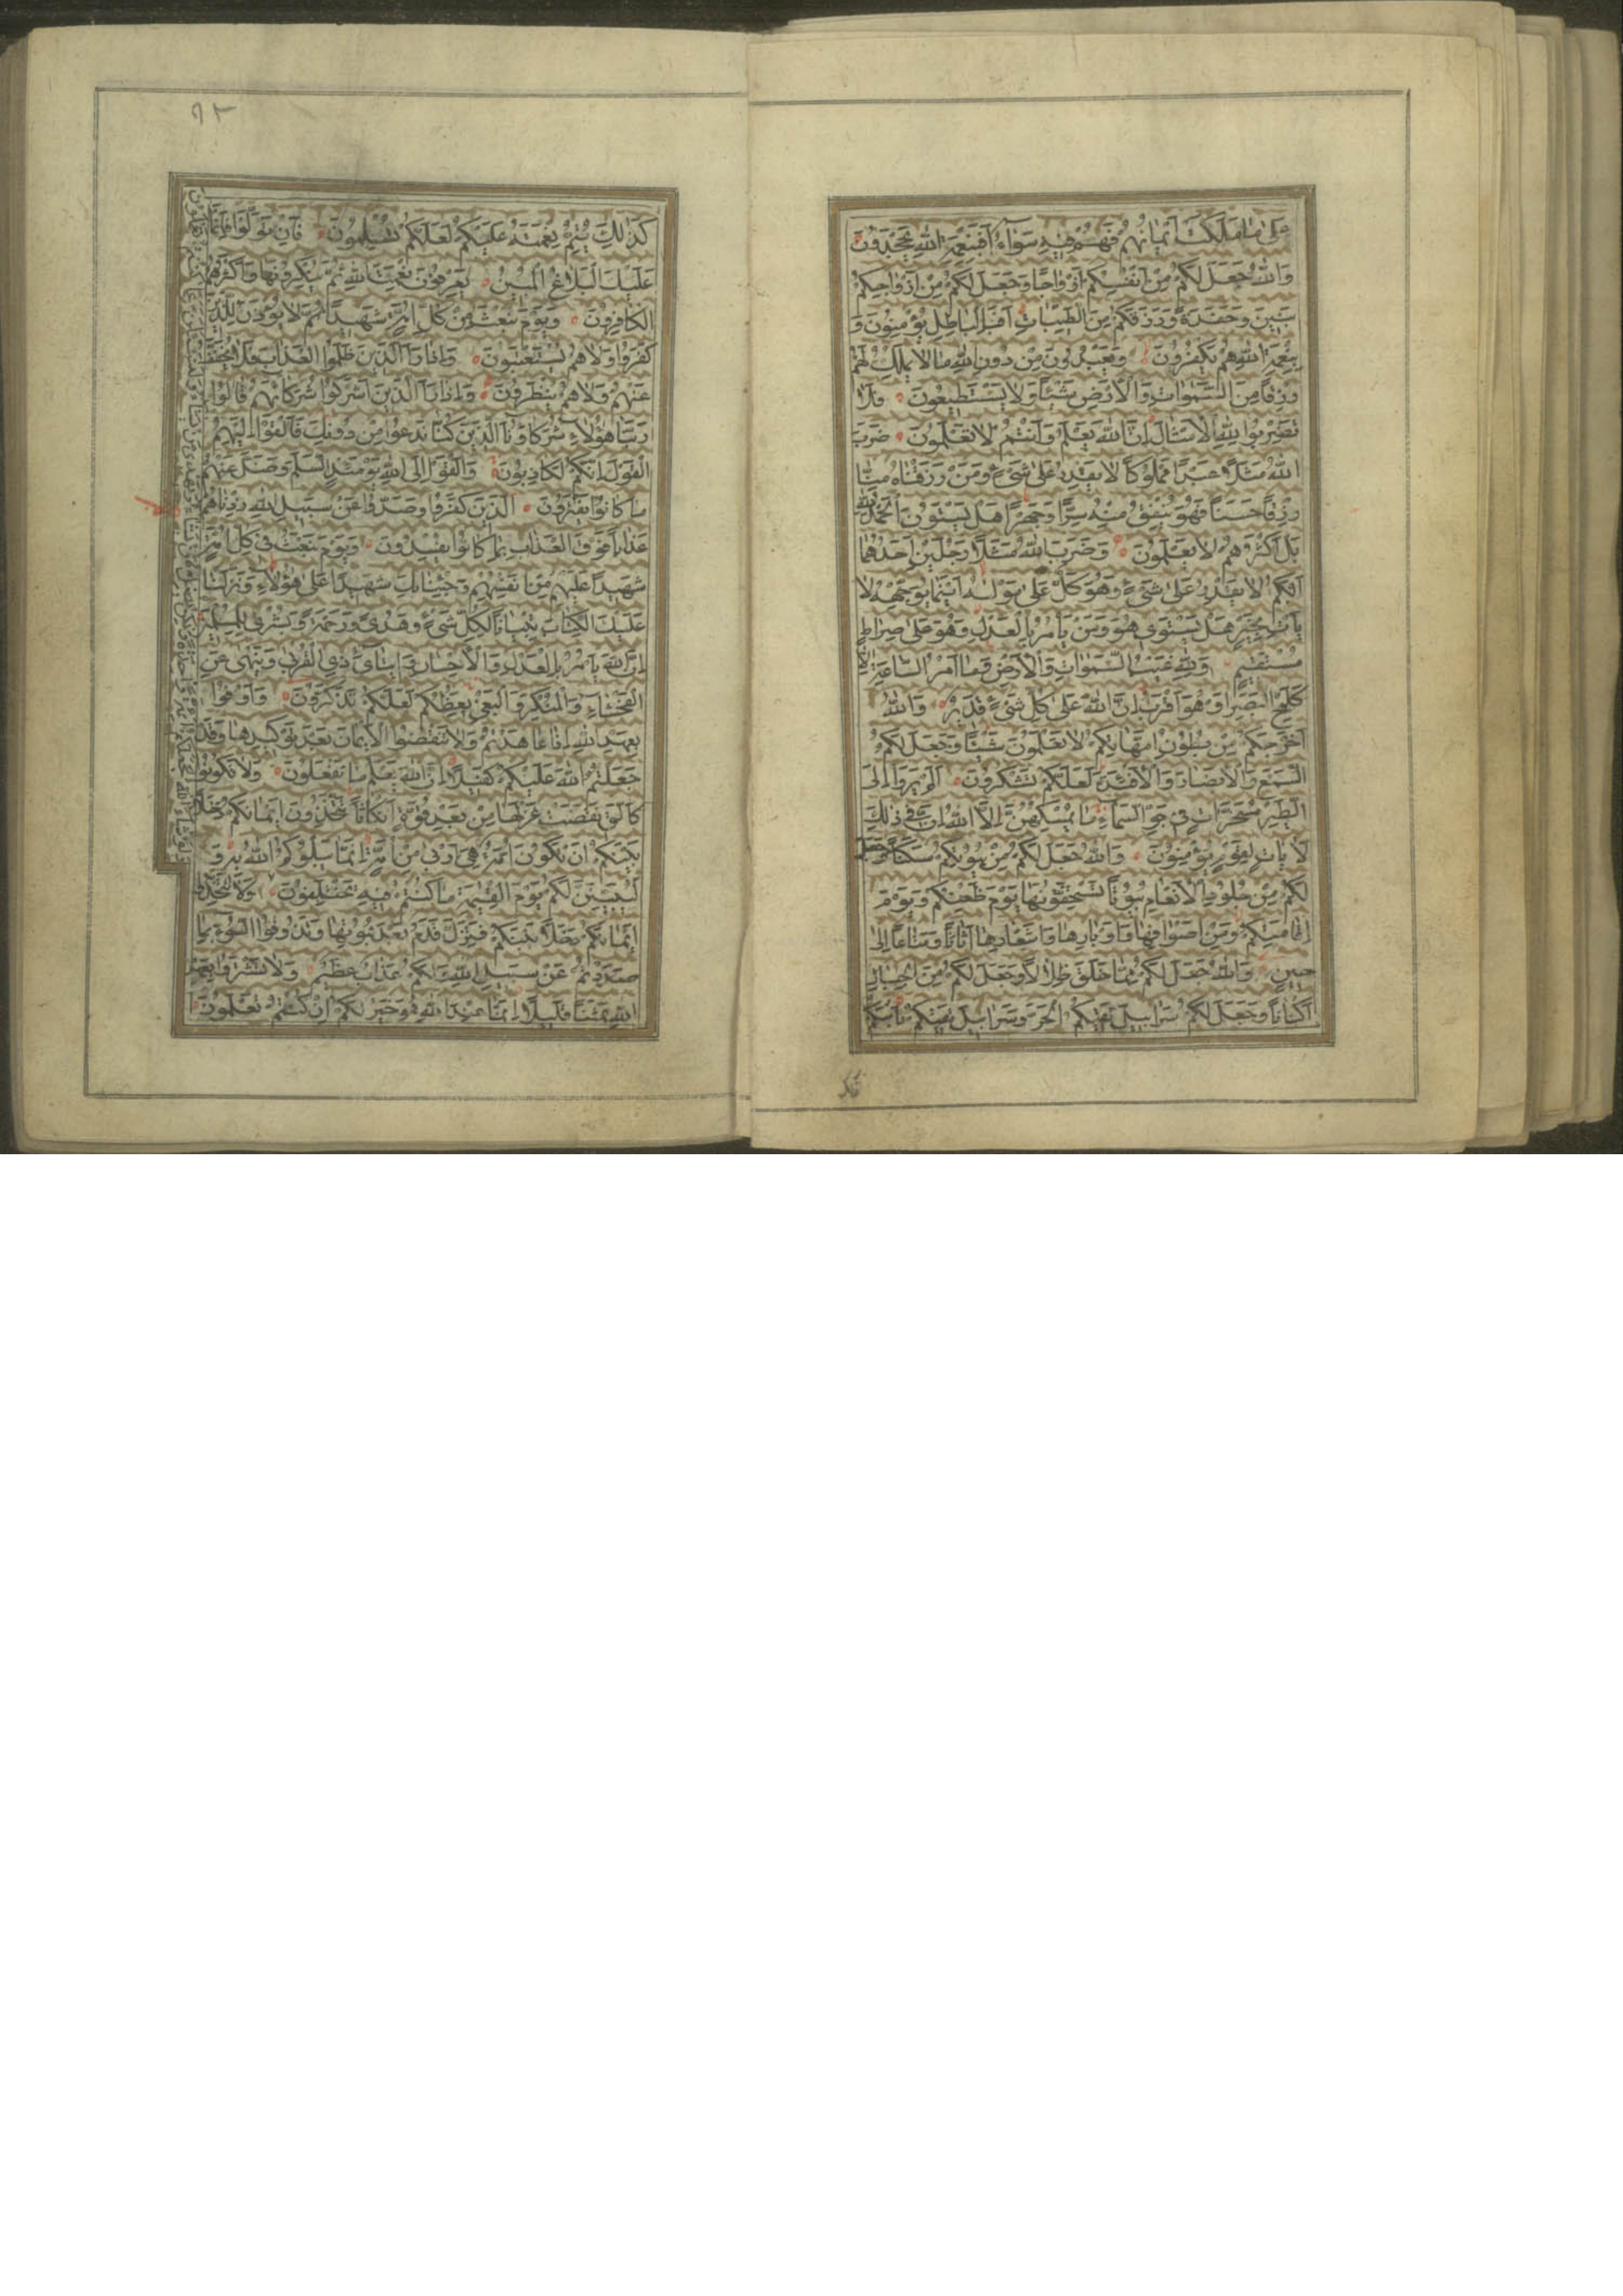 عَلىٰ مٰا مَلَكَتْ اَيْمٰانُهُمْ فَهُمْ فيهِ سَوٰاءٌ اَفَبِنِعْمَةِ اللهِ يَجْحَدُونَ
وَاللهُ جَعَلَ لَكُمْ مِنْ اَنْفُسِكُمْ اَزْوٰاجًا وَجَعَلَ لَكُمْ مِنْ اَزْوٰاجِكُمْ
بَنِينَ وَحَفَدَةً وَرَزَقَكُمْ مِنَ الطَّيِّبٰاتِ اَفَبِالْبٰاطِلِ يُؤْمِنُونَ وَ
بِنِعْمَةِ اللهِ هُمْ يَكْفُرُونَ وَيَعْبُدُونَ مِنْ دُونِ اللهِ مٰا لاٰ يَمْلِكُ لَهُمْ
رِزْقًا مِنَ السَّمٰوٰاتِ وَالْاَرْضِ شَيْئًا وَلاٰ يَسْتَطيعُونَ فَلاٰ
تَضْرِبُوا لِلهِ الْاَمْثٰالَ اِنَّ اللهَ يَعْلَمُ وَاَنْتُمْ لاٰ تَعْلَمُونَ ضَرَبَ
اللهُ مَثَلًا عَبْدًا مَمْلُوكًا لاٰ يَقْدِرُ عَلىٰ شَيْءٍ وَمَنْ رَزَقْنٰاهُ مِنّٰا
رِزْقًا حَسَنًا فَهُوَ يُنْفِقُ مِنْهُ سِرًّا وَجَهْرًا هَلْ يَسْتَوُونَ اَلْحَمْدُ لِلهِ
بَلْ اَكْثَرُهُمْ لاٰ يَعْلَمُونَ وَضَرَبَ اللهُ مَثَلًا رَجُلَيْنِ اَحَدُهُمٰا
اَبْكَمُ لاٰ يَقْدِرُ عَلىٰ شَيْءٍ وَهُوَ كَلٌّ عَلىٰ مَوْلٰـهُ اَيْنَمٰا يُوَجِّهْهُ لاٰ
يَأْتِ بِخَيْرٍ هَلْ يَسْتَوي هُوَ وَمَنْ يَأْمُرُ بِالْعَدْلِ وَهُوَ عَلىٰ صِرٰاطٍ
مُسْتَقيمٍ وَلِلهِ غَيْبُ السَّمٰوٰاتِ وَالْاَرْضِ وَمٰا اَمْرُ السّٰاعَةِ اِلّٰا
كَلَمْحِ الْبَصَرِ اَوْ هُوَ اَقْرَبُ اِنَّ اللهَ عَلىٰ كُلِّ شَيْءٍ قَديرٌ وَاللهُ
اَخْرَجَكُمْ مِنْ بُطُونِ اُمَّهٰاتِكُمْ لاٰ تَعْلَمُونَ شَيْئًا وَجَعَلَ لَكُمُ
السَّمْعَ وَالْاَبْصٰارَ وَالْاَفْئِدَةَ لَعَلَّكُمْ تَشْكُرُونَ اَلَمْ يَرَوْا اِلَى
الطَّيْرِ مُسَخَّرٰاتٍ في جَوِّ السَّمٰاءِ مٰا يُمْسِكُهُنَّ اِلَّا اللهُ اِنَّ في ذٰلِكَ
لَاٰيٰاتٍ لِقَوْمٍ يُؤْمِنُونَ وَاللهُ جَعَلَ لَكُمْ مِنْ بُيُوتِكُمْ سَكَنًا وَجَعَلَ
لَكُمْ مِنْ جُلُودِ الْاَنْعٰامِ بُيُوتًا تَسْتَخِفُّونَهٰا يَوْمَ ظَعْنِكُمْ وَيَوْمَ
اِقٰامَتِكُمْ وَمِنْ اَصْوٰافِهٰا وَاَوْبٰارِهٰا وَاَشْعٰارِهٰا اَثٰاثًا وَمَتٰاعًا اِلىٰ
حينٍ وَاللهُ جَعَلَ لَكُمْ مِمّٰا خَلَقَ ظِلاٰلًا وَجَعَلَ لَكُمْ مِنَ الْجِبٰالِ
اَكْنٰانًا وَجَعَلَ لَكُمْ سَرٰابيلَ تَقيكُمُ الْحَرَّ وَسَرٰابيلَ تَقيكُمْ بَأْسَكُمْ
كَذٰلِكَ يُتِمُّ نِعْمَتَهُ عَلَيْكُمْ لَعَلَّكُمْ تُسْلِمُونَ فَاِنْ تَوَلَّوْا فَاِنَّمٰا
عَلَيْكَ الْبَلاٰغُ الْمُبينُ يَعْرِفُونَ نِعْمَتَ اللهِ ثُمَّ يُنْكِرُونَهٰا وَاَكْثَرُهُمُ
الْكٰافِرُونَ وَيَوْمَ نَبْعَثُ مِنْ كُلِّ اُمَّةٍ شَهيدًا ثُمَّ لاٰ يُؤْذَنُ لِلَّذينَ
كَفَرُوا وَلاٰ هُمْ يُسْتَعْتَبُونَ وَاِذٰا رَاَ الَّذينَ ظَلَمُوا الْعَذٰابَ فَلاٰ يُخَفَّفُ
عَنْهُمْ وَلاٰ هُمْ يُنْظَرُونَ وَاِذٰا رَاَ الَّذينَ اَشْرَكُوا شُرَكٰاءَهُمْ قٰالُوا
رَبَّنٰا هٰؤُلاٰءِ شُرَكٰاؤُنَا الَّذينَ كُنّٰا نَدْعُوا مِنْ دُونِكَ فَاَلْقَوْا اِلَيْهِمُ
الْقَوْلَ اِنَّكُمْ لَكٰاذِبُونَ وَاَلْقَوْا اِلَى اللهِ يَوْمَئِذٍ السَّلَمَ وَضَلَّ عَنْهُمْ
مٰا كٰانُوا يَفْتَرُونَ اَلَّذينَ كَفَرُوا وَصَدُّوا عَنْ سَبيلِ اللهِ زِدْنٰاهُمْ
عَذٰابًا فَوْقَ الْعَذٰابِ بِمٰا كٰانُوا يُفْسِدُونَ وَيَوْمَ نَبْعَثُ في كُلِّ اُمَّةٍ
شَهيدًا عَلَيْهِمْ مِنْ اَنْفُسِهِمْ وَجِئْنٰا بِكَ شَهيدًا عَلىٰ هٰؤُلاٰءِ وَنَزَّلْنٰا
عَلَيْكَ الْكِتٰابَ تِبْيٰانًا لِكُلِّ شَيْءٍ وَهُدًى وَرَحْمَةً وَبُشْرىٰ لِلْمُسْلِمينَ
اِنَّ اللهَ يَأْمُرُ بِالْعَدْلِ وَالْاِحْسٰانِ وَاِيتٰآئِ ذِي الْقُرْبىٰ وَيَنْهىٰ عَنِ
الْفَحْشٰاءِ وَالْمُنْكَرِ وَالْبَغْيِ يَعِظُكُمْ لَعَلَّكُمْ تَذَكَّرُونَ وَاَوْفُوا
بِعَهْدِ اللهِ اِذٰا عٰاهَدْتُمْ وَلاٰ تَنْقُضُوا الْاَيْمٰانَ بَعْدَ تَوْكيدِهٰا وَقَدْ
جَعَلْتُمُ اللهَ عَلَيْكُمْ كَفيلًا اِنَّ اللهَ يَعْلَمُ مٰا تَفْعَلُونَ وَلاٰ تَكُونُوا
كَالَّتي نَقَضَتْ غَزْلَهٰا مِنْ بَعْدِ قُوَّةٍ اَنْكٰاثًا تَتَّخِذُونَ اَيْمٰانَكُمْ دَخَلًا
بَيْنَكُمْ اَنْ تَكُونَ اُمَّةٌ هِيَ اَرْبىٰ مِنْ اُمَّةٍ اِنَّمٰا يَبْلُوكُمُ اللهُ بِهِ وَ
لَيُبَيِّنَنَّ لَكُمْ يَوْمَ الْقِيٰمَةِ مٰا كُنْتُمْ فيهِ تَخْتَلِفُونَ وَلاٰ تَتَّخِذُوا
اَيْمٰانَكُمْ دَخَلًا بَيْنَكُمْ فَتَزِلَّ قَدَمٌ بَعْدَ ثُبُوتِهٰا وَتَذُوقُوا السُّوءَ بِمٰا
صَدَدْتُمْ عَنْ سَبيلِ اللهِ وَلَكُمْ عَذٰابٌ عَظيمٌ وَلاٰ تَشْتَرُوا بِعَهْدِ
اللهِ ثَمَنًا قَليلًا اِنَّمٰا عِنْدَ اللهِ هُوَ خَيْرٌ لَكُمْ اِنْ كُنْتُمْ تَعْلَمُونَ
ولو شاء الله لجعلكم امة واحدة ولكن يضل من يشاء ويهدي من يشاء ولتسئلن عما كنتم تعملون